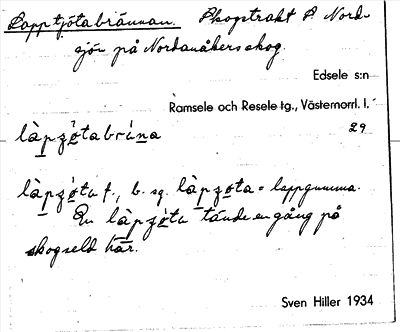 Lapptjötabrännan. Skogstrakt S. Nord-
sjön på Nordanåkers skog.
Edsele s:n
Ramsele och Resele tg., Västernorrl. l.
29
làpzòtabrǽna
làpzòta f., b. sg. làpzòta = lappgumma.
En làpzòta tände en gång på
skogseld här.
Sven Hiller 1934